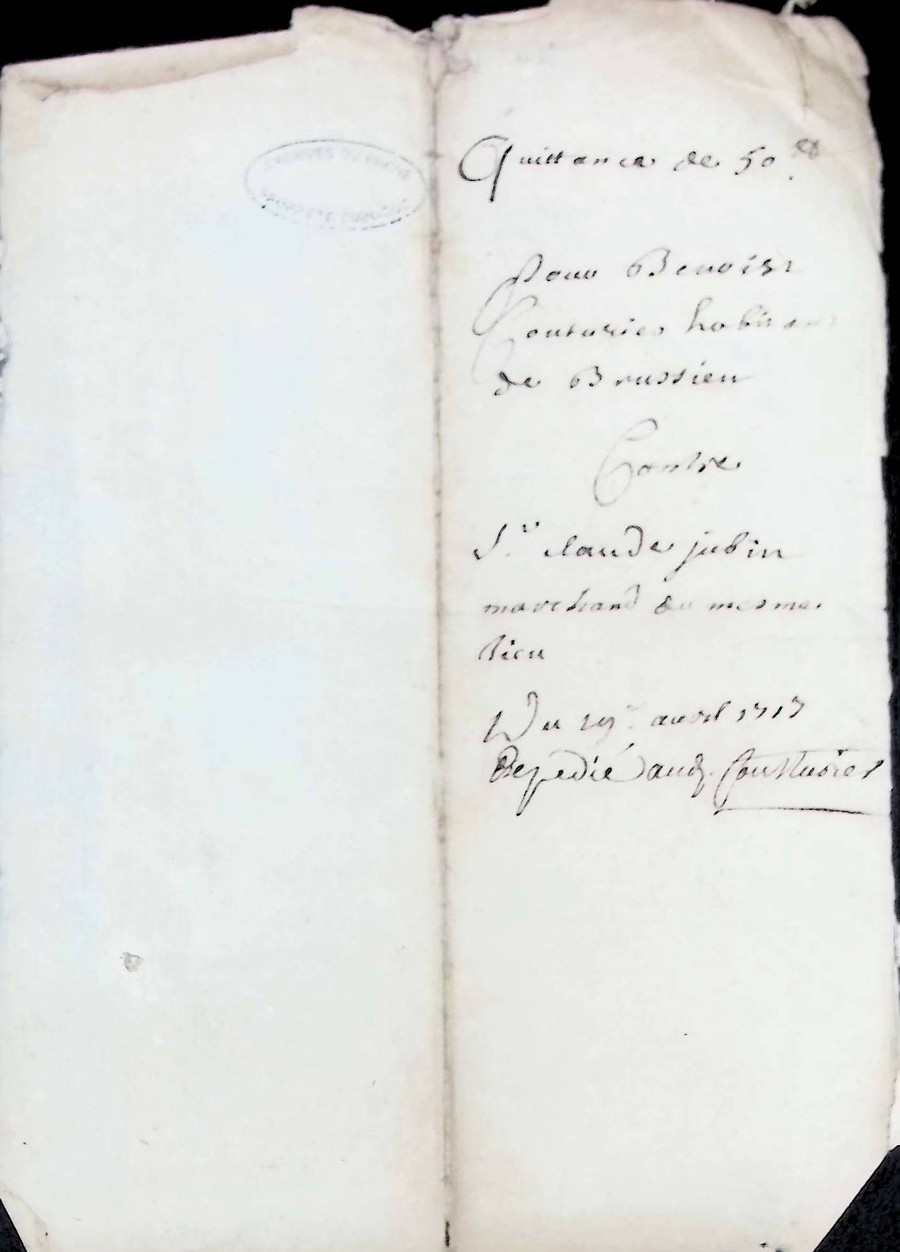 ARCHIVES DU RHÔNE
Quittance de 50 ₶.
Pour Benoist
Couturier habitant
de Brussieu
Contre
Sr. claude jubin
marchand du mesme
lieu
Du avril 1713
Expedié aud. Cousturier